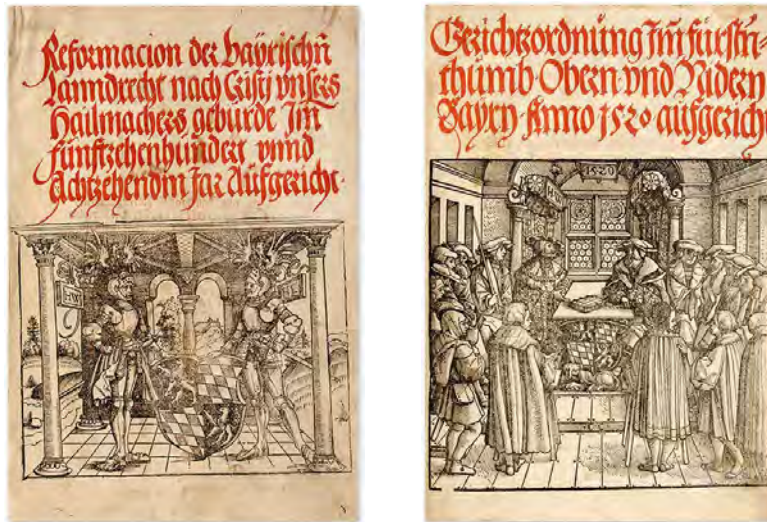 Reformacion der bayrischn
Lanndrecht nach Cristj vnsers
Hailmachers geburde Im
fünftzehenhundert vnnd
Achtzehendm Jar Aufgericht.
Gerichtzordnung Im fürstn-
thumb Obern vnd Nidern
Bayrn Anno 1520 aufgericht
1520